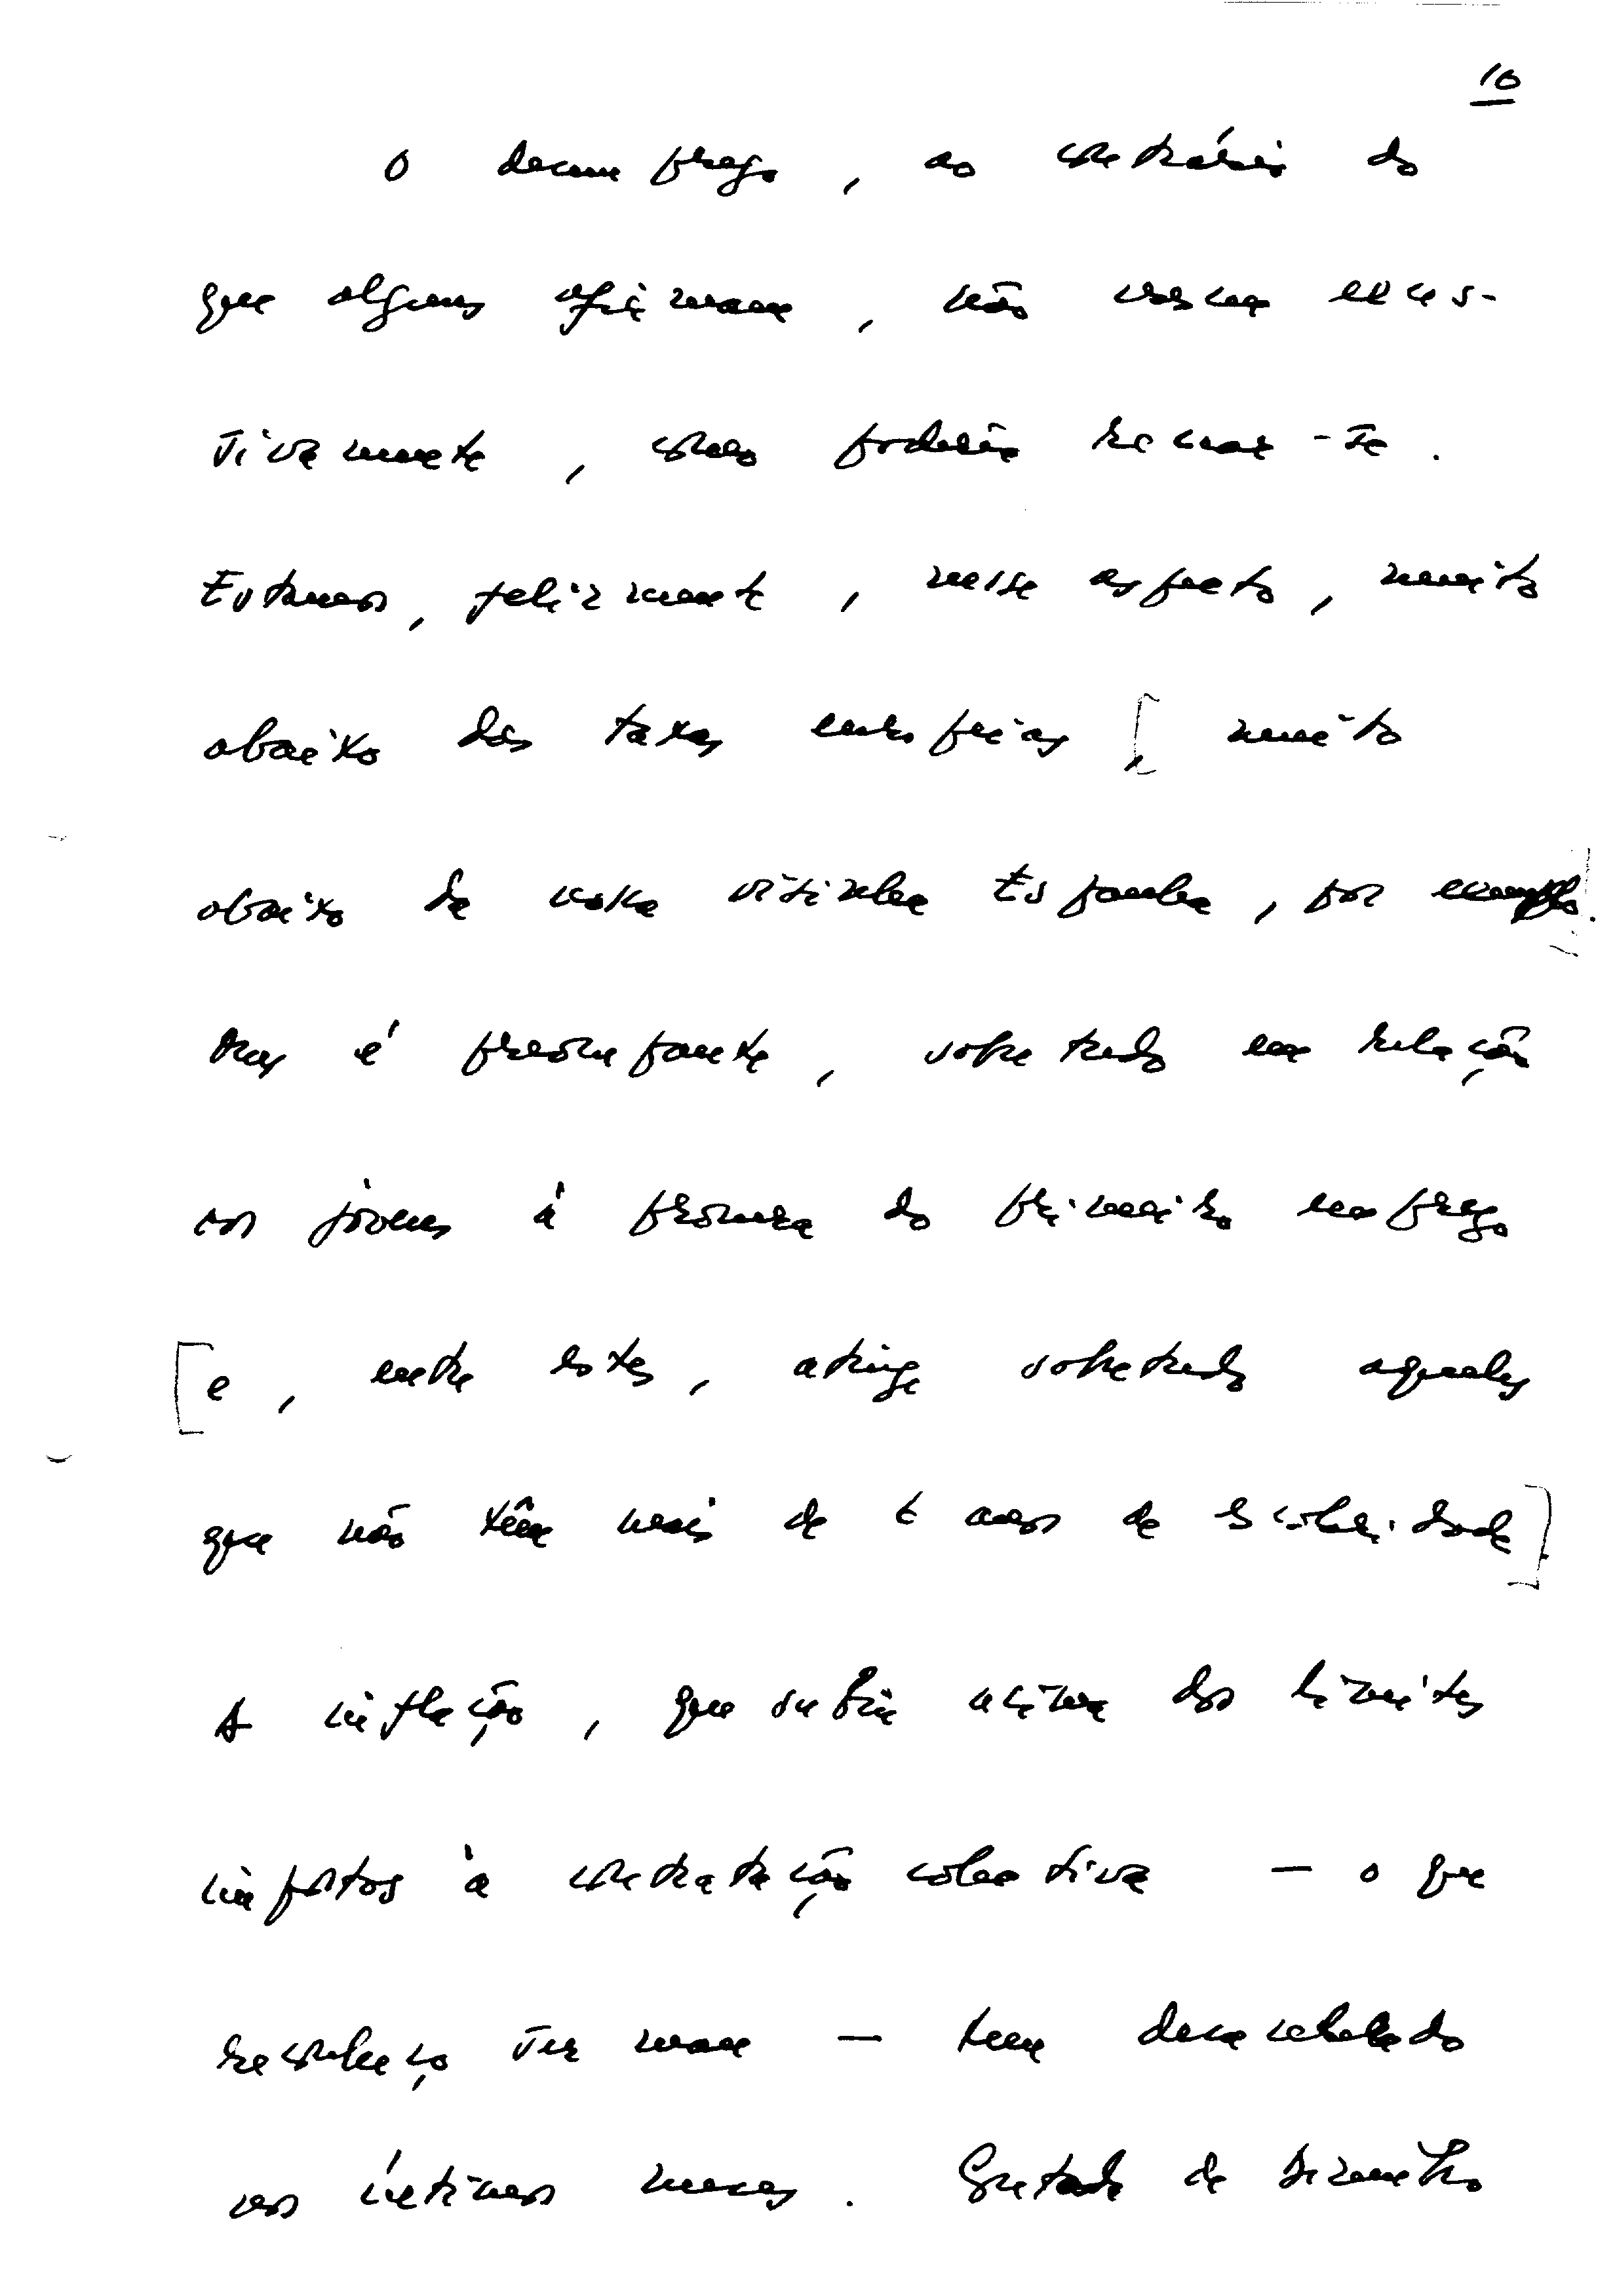 10
O desemprego, ao contrário do
que alguns afirmam, não cresceu exces-
sivamente, como poderia recear-se.
Estamos, felizmente, nesse aspecto, muito
abaixo das taxas europeias [, muito
abaixo da nossa vizinha Espanha, por exemplo].
Mas é preocupante, sobretudo em relação
aos jovens à procura do primeiro emprego
[e, entre estes, atinge sobretudo aqueles
que não têm mais de 6 anos de escolaridade].
A inflação, que subia acima dos limites
impostos à contratação colectiva — o que
reconheço ser mau — tem desacelerado
nos últimos meses. Gostaria de